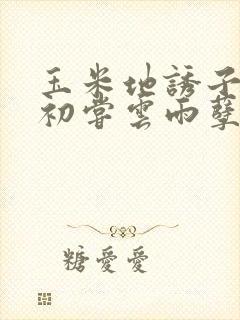 玉米地誘子
初嘗雲雨孽
糖愛愛